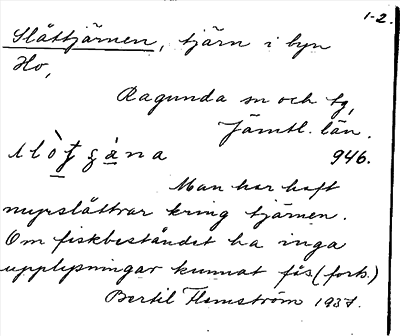 1-2.
Slåttjärnen, tjärn i byn
Ho,
Ragunda sn och tg,
Jämtl. län.
946.
Man har haft
myrslåttrar kring tjärnen.
Om fiskbeståndet ha inga
upplysningar kunnat fås (forts.)
Bertil Flemström 1937.